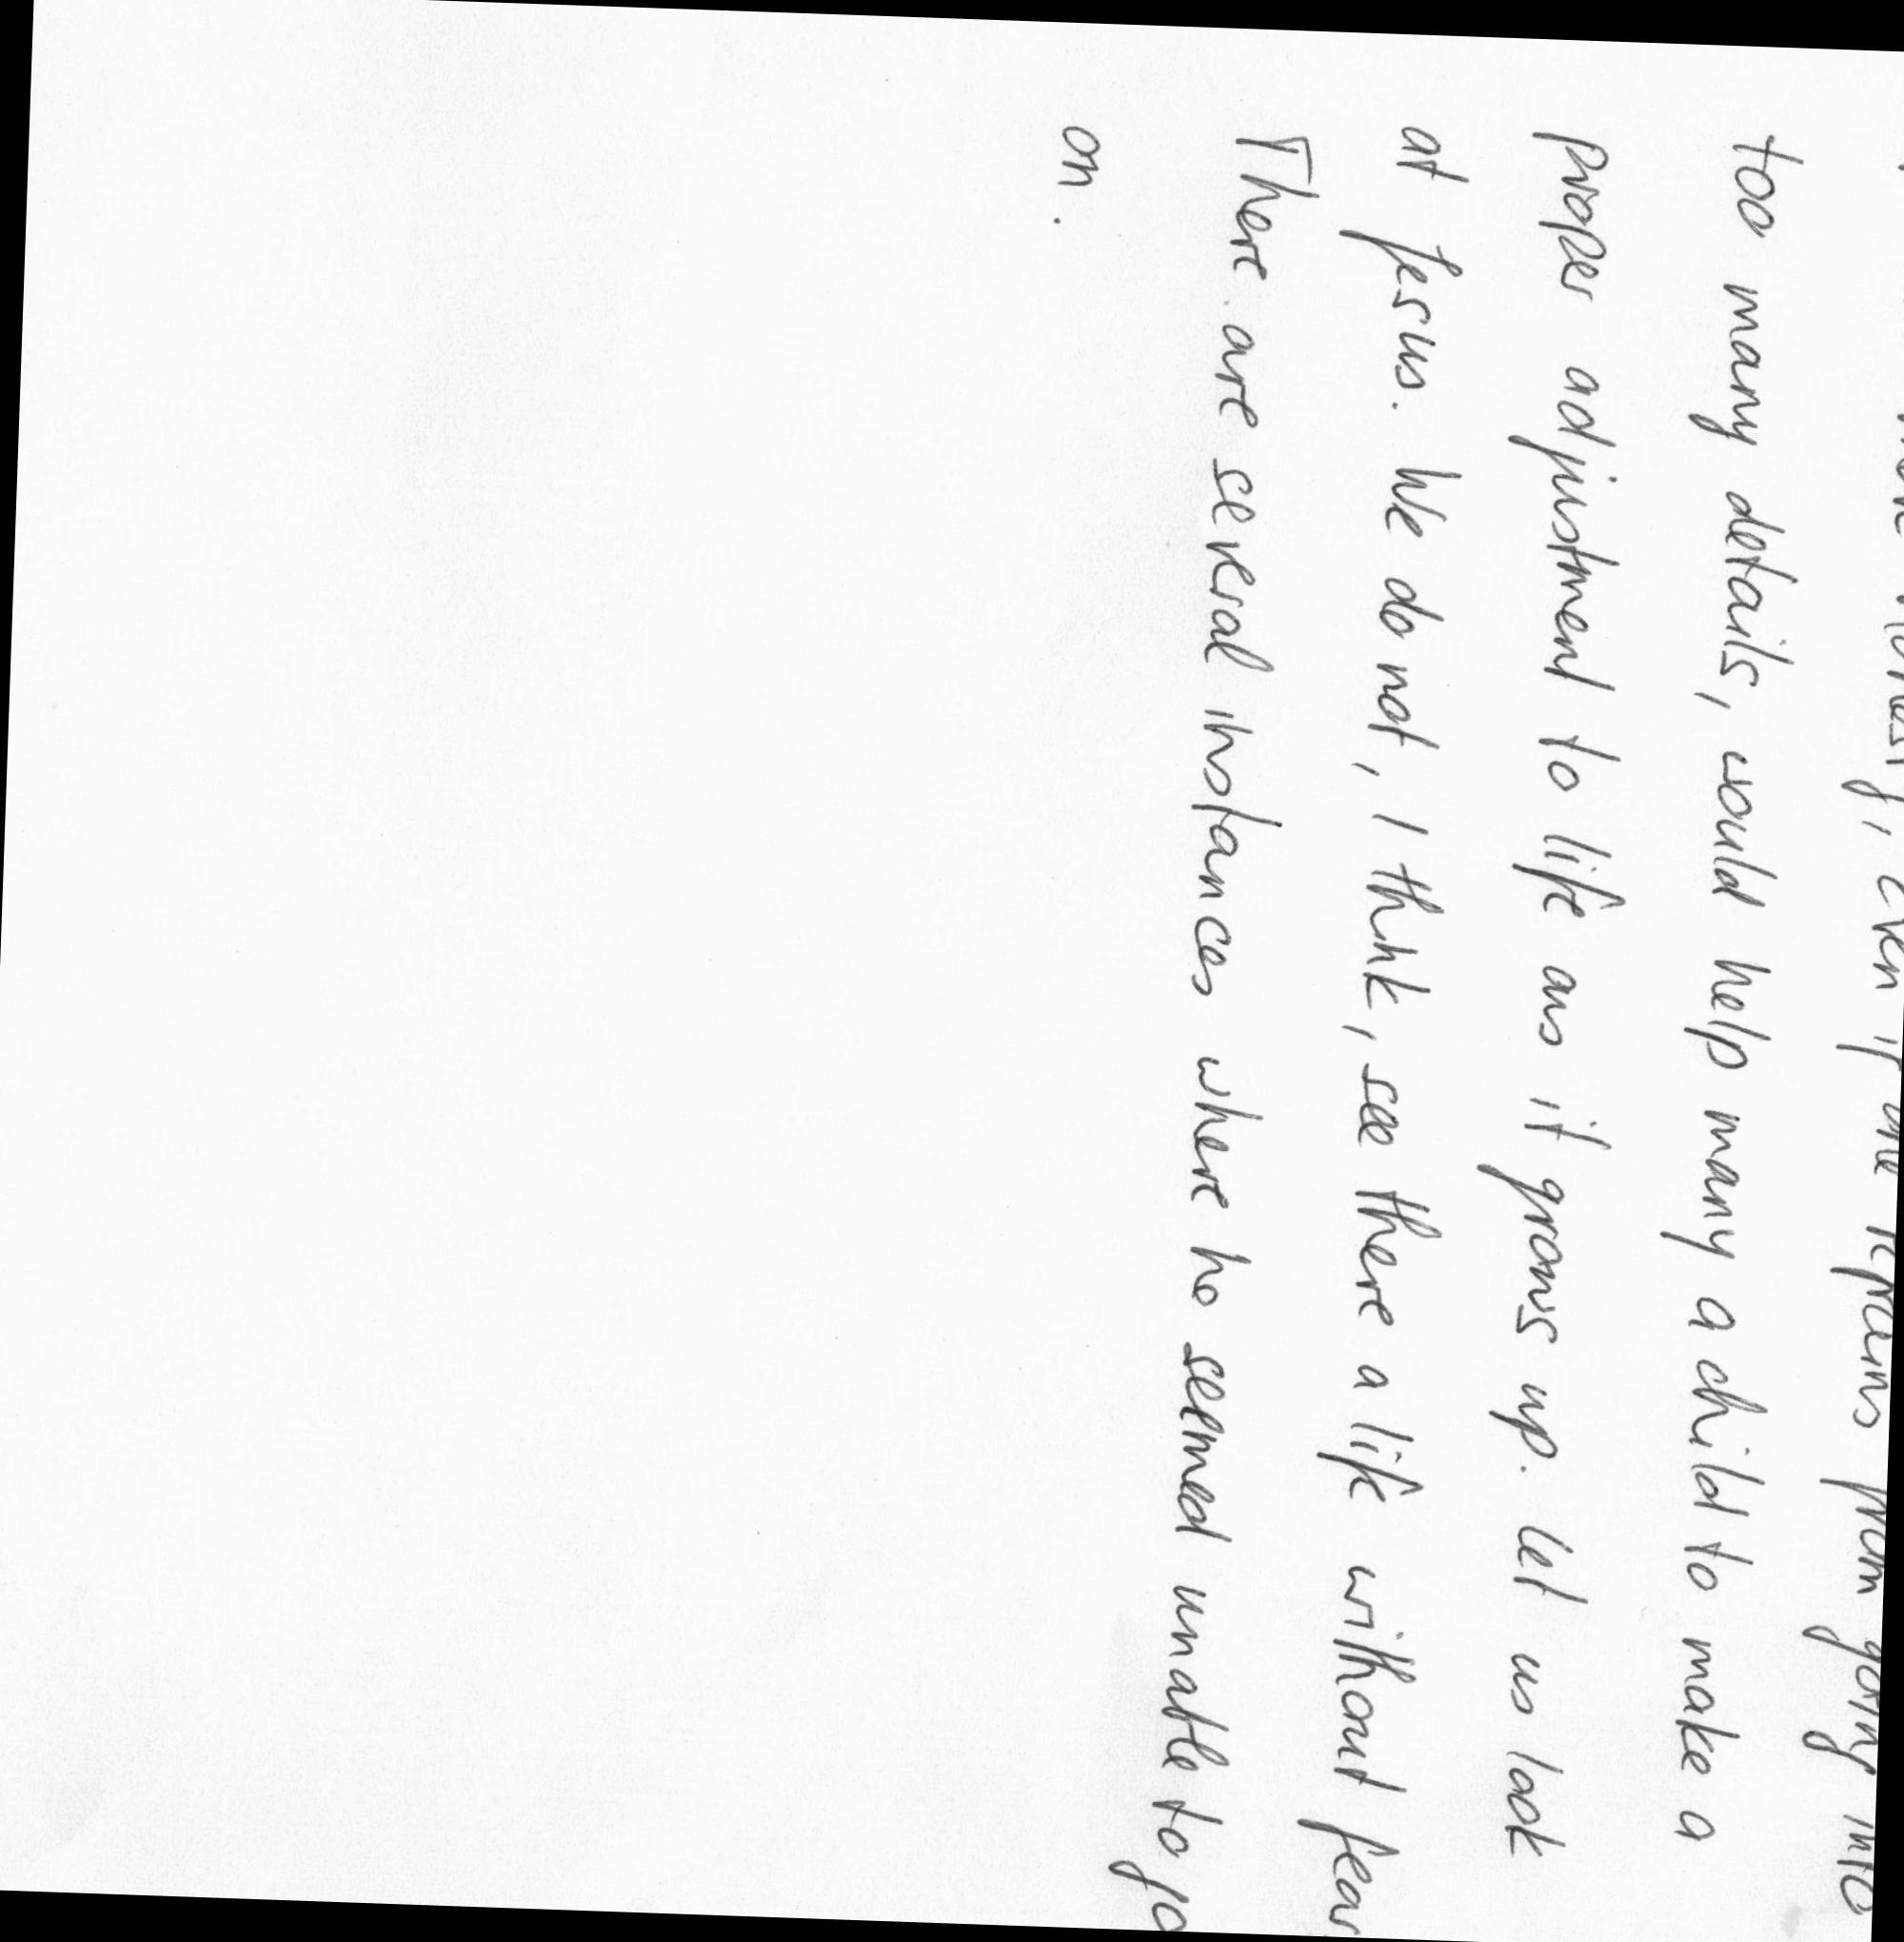 even if one refrains from going into
too many details, would help many a child to make a
proper adjustment to life as it grows up. Let us look
at Jesus. We do not, I think, see there a life without fear
There are several instances where he seemed unable to go
on.